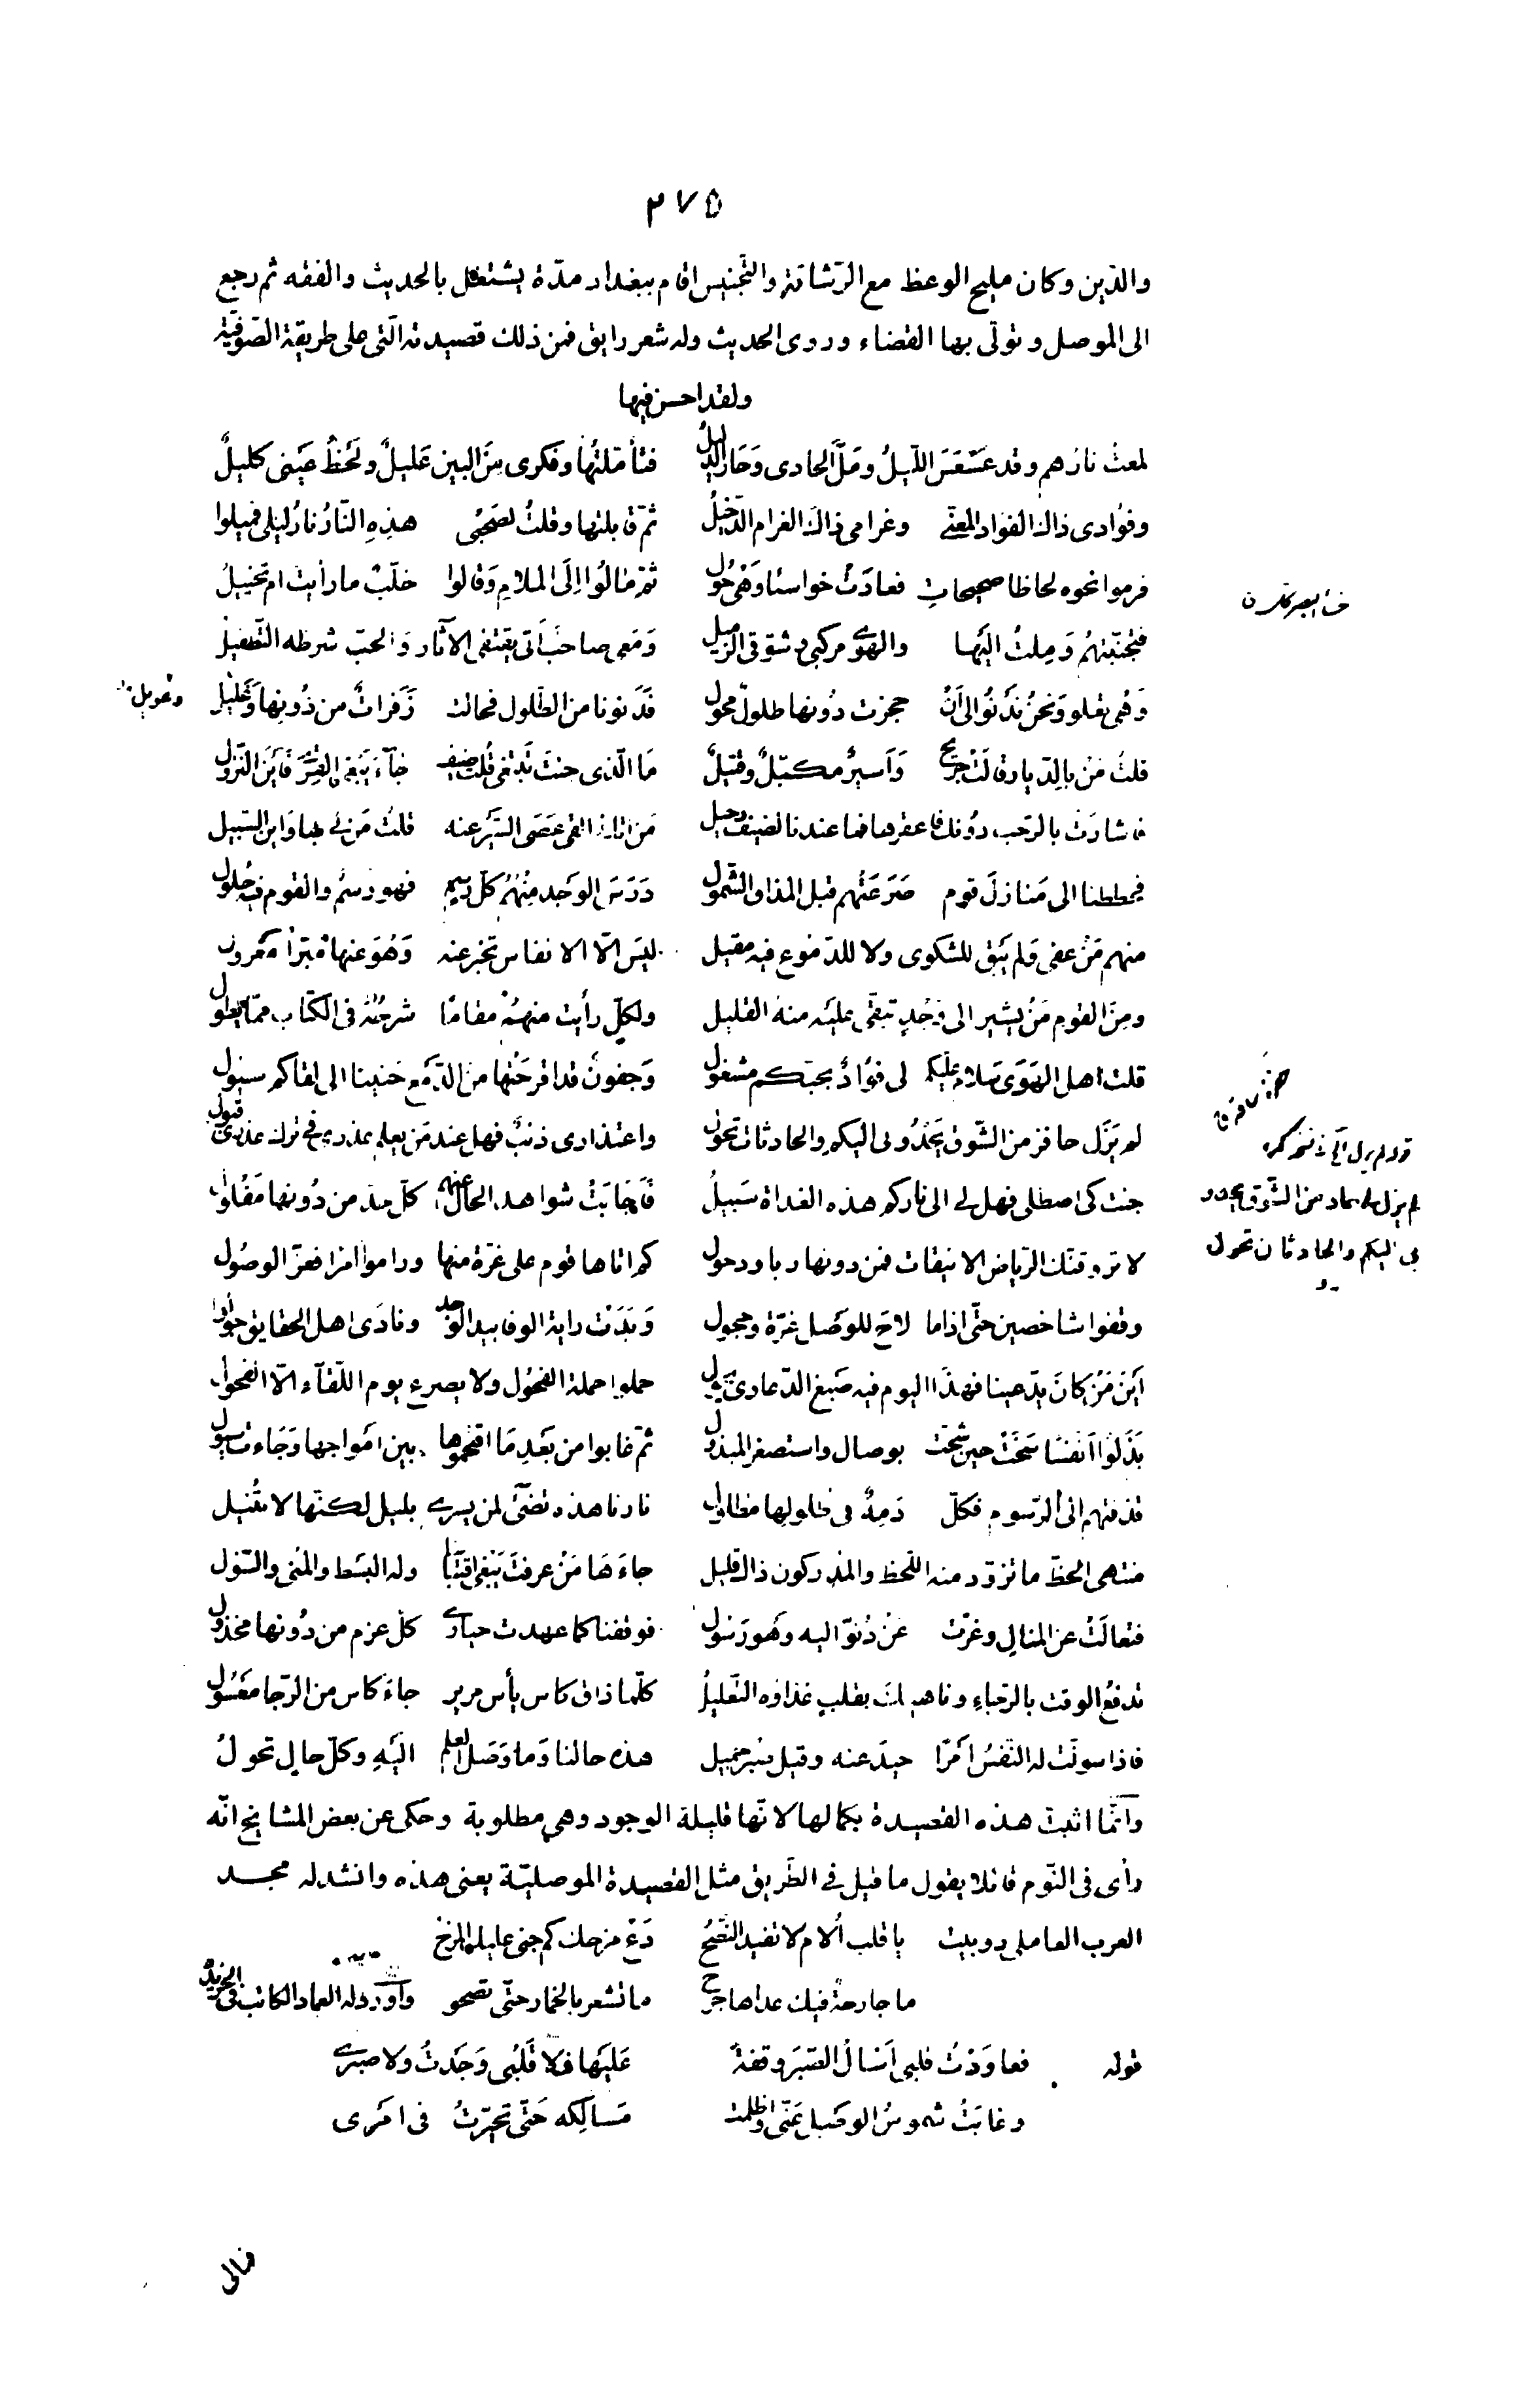 ٢٧٥
والدّين وكان مليح الوعظ مع الرّشاقة والتّجنيس اقام ببغداد مدّة يشتغل بالحديث والفقه ثم رجع
الى الموصل وتولّى بها القضاء وروى الحديث وله شعر رايق فمن ذلك قصيدته الّتى على طريقة الصّوفيّة
ولقد احسن فيها
لمعت نارُهم وقد عَسْعَسَ اللّيلُ ومَلَّ الحادى وَحَارَ الدّليلُ فتأمّلتُها وفكرى مِنَ البين عَليلٌ ولَحْظُ عَيْنى كليلٌ
وفؤادى ذاك الفؤاد المعنّى وغرامى ذاك الغرام الدّخيلُ ثمّ قابلتها وقلتُ لصَحْبى هذِهِ النّارُ نارُ ليلى فميلوا
فرموا نحوه لحاظا صحيحاتِ فعادَتْ خواسئا وَهْىَ حُولُ ثمّ مَالُوا اِلَى الملامِ وَقالوا خلّبٌ ما رأيت ام تخييلُ
خسأ البصر
فتجنّبتهُم وَمِلتُ اليَها والهَوى مركبى وشوقى الزميل وَمَعى صاحبٌ اَتى يقتفى الآثار وَالحبّ شرطه التّطفيلُ
وَهْىَ تعلو وَنحنُ نَدْنُوا الى اَنْ حجزت دُونها طلولٌ محول فَدَنونا من الطّلول فحالت زَفَراتٌ من دُونها وَغليل
وعويل
قلتُ مَنْ بالدّيار قالَتْ جريح وَاَسيرٌ مكبّلٌ وقتيلٌ مَا الّذى جئتَ تَبتغى قُلتُ ضيف جآءَ يَبْغى القِرَى فَاَيْنَ النّزول
فاشارَت بالرّحب دُونك فاعقرها فما عندنا لضيف رحيل مَن اتانا القى عَصَى السَّيْر عنه قلتُ مَن لى بها وَاين السّبيل
فحططنا الى مَنازلَ قوم صَرَعَتْهم قبل المذاق الشّمول دَرَسَ الوَجد مِنْهُمُ كلّ رسم فهو رسمٌ والقوم فيه حُلول
منهم مَنْ عفى وَلم يَبْقَ للشكوى ولا للدّموع فيه مقيل ليسَ الّا الانفاس تخبر عنه وَهُوَ عنها مُبَرّأ معزول
ومِنَ القوم مَنْ يشير الى وَجْدٍ تبقّى عليَه منهُ القليل ولكلٍّ رأيت منهم مقامًا شرحُهُ فى الكتاب ممّا يطول
قلت اهل الهَوَى سَلام عليكم لى فؤادٌ بحبّكم مشغول وَجفونٌ قد اقرحَتْها من الدّمَع حَنينا الى لقاكم سيول
لم يَزَل حافز من الشّوق يَحْدُونى اليكم والحادثات تحول واعتذارى ذنبٌ فهل عند مَن يعلم عذرى فى ترك عذرى قبول
جئت كى اصطلى فهل لى الى ناركم هذه الغداة سَبيلُ فَاَجَابَتْ شواهد الحال عنهم كلّ حدّ من دُونها مَفْلول
لم يزل من الشّوق يحدو
بى اليكم والحادثات تحول
لا تروقنّك الرّياض الانيقات فمن دونها ربا ودحول كم اتاها قوم على غرّة منها وراموا امرا فعزّ الوصُول
وقفوا شاخصين حتّى اذا ما لاحَ للوَصْل غرّة وحجول وَبَدَتْ راية الوفا بيد الوجد ونادَى اهل الحقايق جولوا
اَيْنَ مَنْ كانَ يدّعينا فهذَا اليوم فيه صَبغ الدّعاوى يحول حملوا حملة الفحُول ولا يصرع يوم اللّقآء الّا الفحول
بَذَلُوا اَنفسًا سَخَتْ حين شحّت بوصال واستصغر المبذول ثمّ غابوا من بَعْدِ مَا اقتحموها بين امواجها وَجَاءت سيول
قذفتهم الى الرّسوم فكلّ دَمهُ فى طلولها مطلول نارنا هذه تضئ لمن يسرى بليل لكنّها لا تُنيل
منتهى الحظّ ما تزوّد منه اللّحظ والمدركون ذاك قليل جاءَهَا مَنْ عرفتَ يَبْغى اقتباسًا وله البَسْط والمُنى والسّول
فتعالَتْ عن المنال وعزّت عَنْ دُنوّ اليه وَهو رَسُول فوقفنا كما عهدت حيارى كلّ عزم من دُونها مخذول
ندفعُ الوقت بالرّجاءِ وناهيك بقلبٍ غذاؤه التّعليلُ كلّما ذاق كاس يأس مرير جاءَ كاس من الرّجا مَعْسُول
فاذا سولّت له النّفسُ اَمْرًا حيدَ عنه وقيل صبر جميل هذه حالنا وَما وَصَل العلم اليَهِ وكلّ حال تحولُ
وانّما اثبت هذه القصيدة بكمالها لانّها قليلة الوجود وهى مطلوبة وحكى عن بعض المشايخ انّه
رأى فى النّوم قائلا يقول ما قيل فى الطّريق مثل القصيدة الموصليّة يعنى هذه وانشد له مجد
العرب العاملى دوبيت يا قلب اُلام لا تفيد النّصْحُ دَعْ مزحك كم جنى عليك المزحُ
ما جارحة فيك عداها جرح ما تشعر بالخمار حتّى تصحو وَاورد له العماد الكاتب فى الخريدة
قوله فعاوَدْتُ قلبى اَسْالُ الصّبرَ وقفةً عَليَها فلا قَلْبى وَجَدتُ ولا صَبْرى
وغابَتْ شموسُ الوصْل عَنّى واظلمت مَسالِكه حَتّى تحيّرتُ فى امَرى